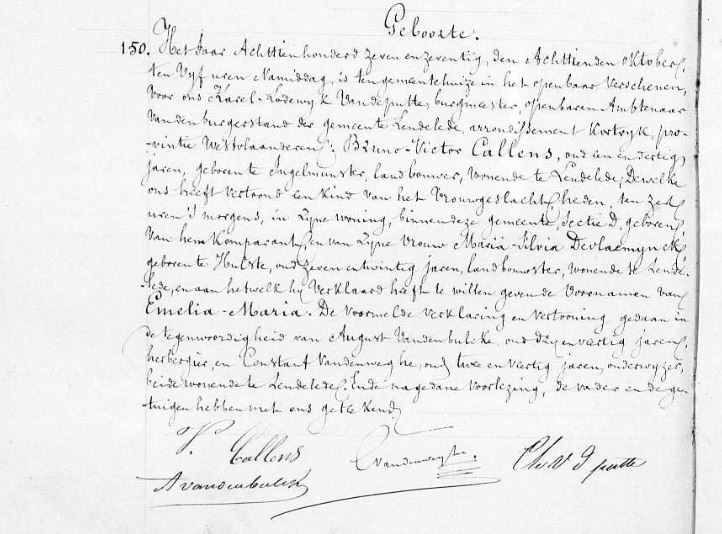 Geboorte.
150. Het Jaar Achttienhonderd zeven en zeventig, den Achttienden Oktober,
ten Vyf uren Namiddag, is ten gemeentehuize in het openbaar Verschenen,
voor ons Karel-Lodewyk Vandeputte, burgmeester, openbaren Ambtenaar
van den burgerstand der gemeente Lendelede, arrondissement Kortryk, pro-
vintie Westvlaanderen; Bruno-Victor Callens, oud een en dertig
jaren, geboren te Ingelmunster, landbouwer, wonende te Lendelede, Dewelke
ons heeft vertoond een Kind van het vrouwgeslacht, heden, ten zes
uren 's morgens, in zyne woning, binnen deze gemeente, Sectie D, geboren,
van hem Komparant, en van zyne vrouw Maria-Silvia Devlaemynck
geboren te Hulste, oud zeven en twintig jaren, landbouwster, wonende te Lende-
lede, en aan hetwelk hy Verklaard heeft te willen geven de Voornamen van
Emelia-Maria. De voormelde verklaring en vertooning gedaan in
de tegenwoordigheid van August Vandenbulcke, oud dry en veertig jaren,
herbergier, en Constant Vandenweghe, oud twee en veertig jaren, onderwyzer,
beide wonende te Lendelede. Ende na gedane voorlezing, de vader en de ge-
tuigen hebben met ons geteekend
V. Callens
CVandenweghe.
Ch V D putte
A vandenbulcke